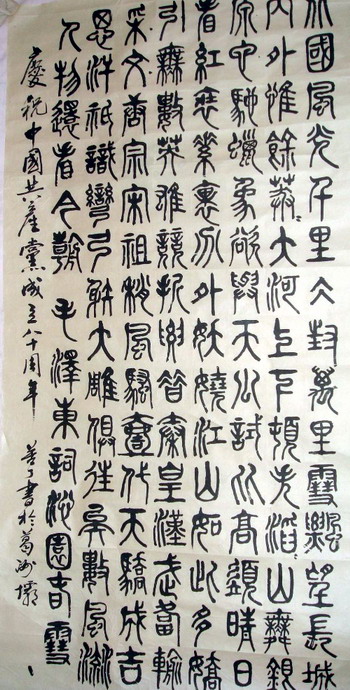 北國風光千里冰封萬里雪飄望長城
內外惟餘莽莽大河上下頓失滔滔山舞銀
原馳蠟象欲與天公試比高須晴日
看紅妝素裹分外妖嬈江山如此多嬌
引無數英雄競折腰惜秦皇漢武略輸
采文唐宗宋祖稍風騷壹代天驕成吉
思汗祇識彎弓射大雕俱往矣數風流
人物還看今朝 毛澤東詞沁園春雪
慶祝中國共產黨成立八十周年 書於葛洲壩